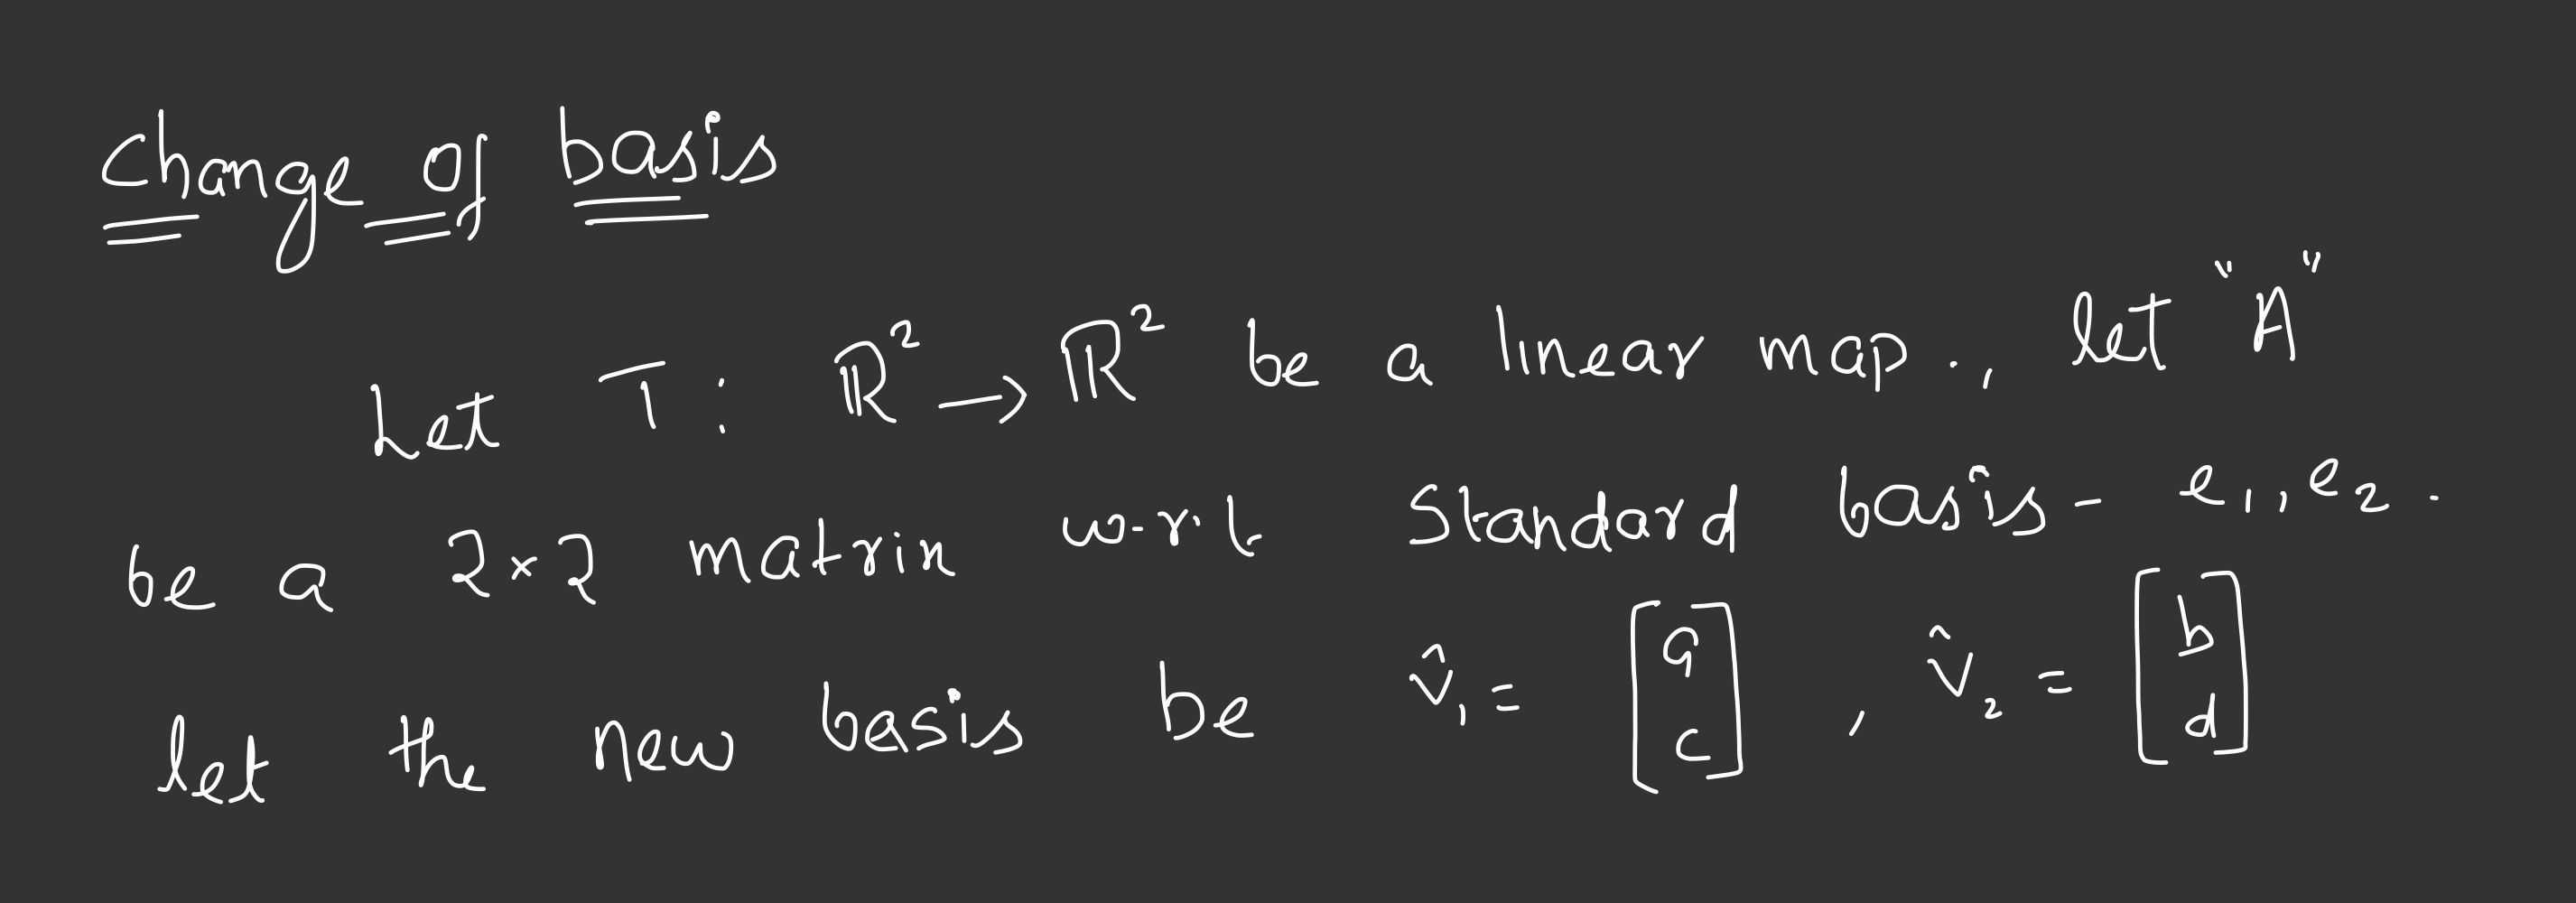 Change of basis
Let T : ℝ² → ℝ² be a linear map., let "A"
be a 2×2 matrix w.r.t. Standard basis - e₁, e₂.
let the new basis be v̂₁ = [a c], v̂₂ = [b d]